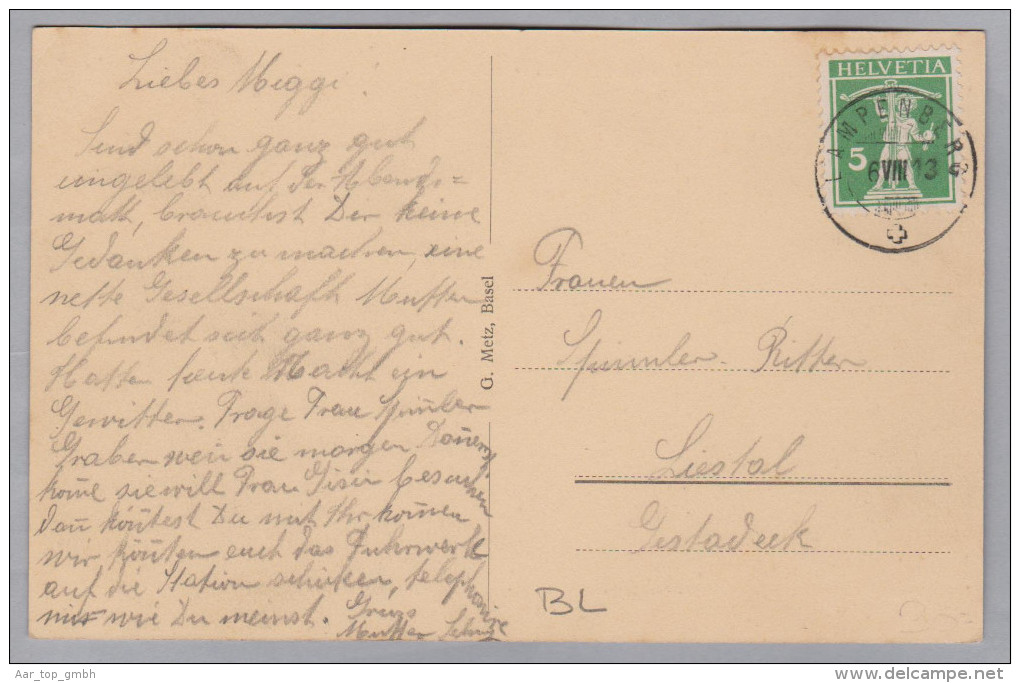 Liebes Meggi!
Sind schon ganz gut
eingelebt auf der Abends=
matt, brauchst Der keine
Gedanken zu machen, eine
nette Gesellschaft Mutter
befindet seit ganz gut.
Hatten heute Nacht ein
Gewitter. Frage Frau Spinler
Graber wen sie morgen Doners
kom̄e sie will Frau Gisin besuchen
dan̄ kön̄test Du mit Ihr kom̄en
wir kön̄ten euch das Fuhrwerk
auf die Station schicken, telephoniere
mir wie Du meinst. Gruss
Mutter
G. Metz, Basel
HELVETIA
5
LAMPENBERG
6 VIII 13
Frauen
Spinnler-Ritter
Liestal
Gestadeck
BL
Aar_top_gmbh
www.delcampe.net